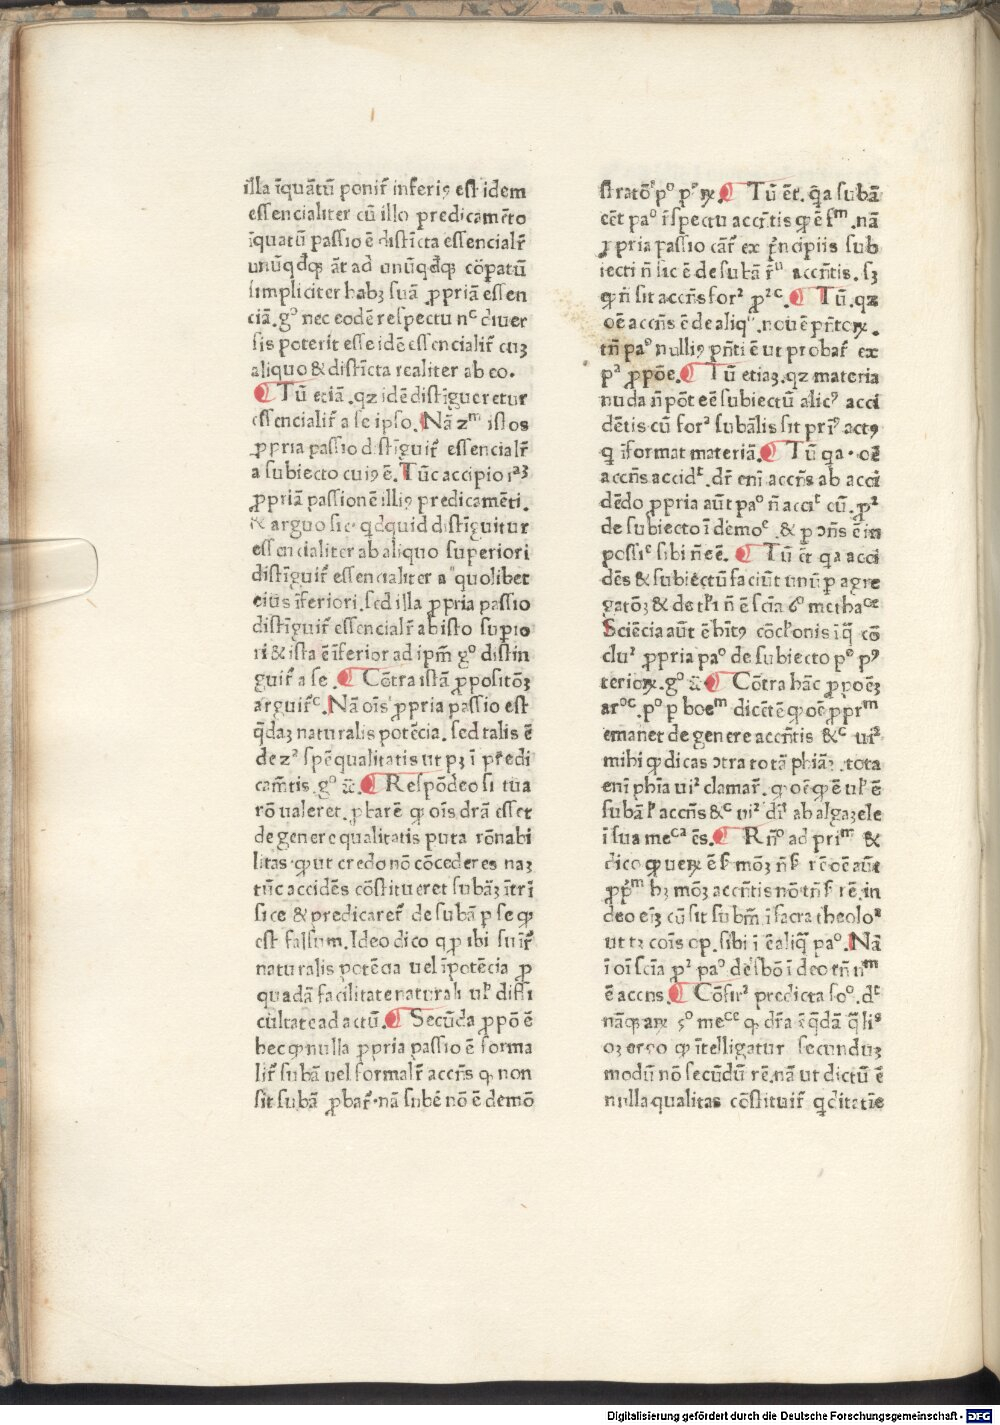 illa īquātū poniṙ inferiꝯ est idem
essencialiter cū illo predicamēto
īquatū passio ē distīcta essencialṙ
unūqđqꝫ āt ad unūqđqꝫ cōpatū
simpliciter habꝫ suā ꝓpriā essen
ciā. gº nec eodē respectu nᶜ diuer
sis poterit esse idē essencialiṙ cuꝫ
aliquo & distīcta realiter ab eo.
¶ Tū eciā. qz idē distīgueretur
essencialiṙ a se ipso. Nā zᵐ istos
ꝓpria passio distīguiṙ essencialṙ
a subiecto cuiꝯ ē. Tūc accipio iᵃꝫ
ꝓpriā passionē illiꝯ predicamēti.
& arguo sic qđquid distīguitur
essencialiter ab aliquo superiori
distīguiṙ essencialiter a quolibet
eius īferiori. sed illa ꝓpria passio
distīguiṙ essencialṙ ab isto supio
ri & ista ē īferior ad ipm̄ gº distin
guiṙ a se. ¶ Cōtra istā ꝓpositōꝫ
arguiṙᶜ. Nā oīs ꝓpria passio est
q̄daꝫ naturalis potēcia. sed talis ē
de zᵃ spē qualitatis ut pꝫ ī pr̄edi
cam̄tis. gº &̄. ¶ Respōdeo si tua
rō ualeret. ꝓbarē ꝙ oīs dr̄a esset
de genere qualitatis puta rōnabi
litas ꝙ ut credo nō cōcederes naꝫ
tūc accidēs cōstitueret subāꝫ ītrī
sice & predicareṙ de subā p se ꝙ
est falsum. Ideo dico q ꝓ ibi suīṙ
naturalis potēcia uel īpotēcia ꝓ
quadā facilitate naturali ul̓ diffi
cultate ad actū. ¶ Secūda ꝓpō ē
hec ꝙ nulla ꝓpria passio ē forma
liṙ subā uel formalṙ accn̄s ꝙ non
sit subā ꝓbaṙ. nā subē nō ē demō
stratōᶦ pº pᵉrꝝ ¶ Tū ēt. q̄a subā
cēt paº r̄spectu accn̄tis ꝙ ē fᵐ. nā
ꝓpria passio cāṙ ex p̄ncipiis sub
iecti n̄ sic ē de subā r̄ⁿ accn̄tis. sꝫ
ꝙ n̄ sit accn̄s forᵃ ꝓᵃᶜ. ¶ Tū. qz
oē accn̄s ē de aliqº. nouē pn̄toꝝ.
tn̄ paº nulliꝯ pn̄ti ē ut probaṙ ex
pᵃ ꝓpōe. ¶ Tū etiaꝫ. qz materia
nuda n̄ pōt eē subiectū alicꝯ acci
dētis cū forᵃ subālis sit prīꝯ actꝯ
q̄ īformat materiā. ¶ Tū q̄a. oē
accn̄s accidᵗ. dr̄ enī accn̄s ab acci
dēdo ꝓpria aūt paº n̄ acciᵗ cū. ꝓᵃ
de subiecto ī dēmoᵉ & p ↄn̄s ē in
possiᵉ sibi n̄ eē. ¶ Tū ēt q̄a acci
dēs & subiectū faciūt unū p agre
gatōꝫ & de tl̓i n̄ ē scīa 6º methaᶜᵉ
Sciēcia aūt ē h̄itꝯ cōcl̓onis ī q̄ cō
cluᵃ ꝓpria paº de subiecto pᵉ pꝯ
terioꝝ. gº &̄ ¶ Cōtra hāc ꝓpoēꝫ
arºᶜ. pº p boeᵐ dicētē ꝙ oē ꝓprᵐ
emanet de genere accn̄tis &ᶜ uiᵃ
mihi ꝙ dicas ↄtra totā phiāꝫ. tota
enī phīa uiᵃ clamaṙ. ꝙ oē ꝙ ē ul̓ ē
subā l̓ accn̄s &ᶜ uiᵃ di̓ ab algazele
ī sua meᶜᵃ ēs. ¶ Rn̄º ad priᵐ &
dico ꝙ ueꝝ ē ẜ mōꝫ n̄ ẜ rē oē aūt
ꝓpᵐ hꝫ mōꝫ accn̄tis nō tn̄ ẜ rē. in
deo eīꝫ cū sit subm̄ ī sacra theoloᵃ
ut tꝫ coīs op. sibi ī ē aliq̄ paº. Nā
ī oī scīa ꝓᵃ paº. de sbō ī deo tn̄ nᵐ
ē accns. ¶ Cōfirᵃ predicta soº. dᵗ
nāqꝫ arꝝ 5º meᶜᵉ ꝙ dr̄a ē q̄dā q̄liˢ
oꝫ ergo ꝙ ītelligatur secunduꝫ
modū nō secūdū rē. nā ut dictū ē
nulla qualitas cōstituiṙ q̄ditatīe
Digitalisierung gefördert durch die Deutsche Forschungsgemeinschaft - DFG